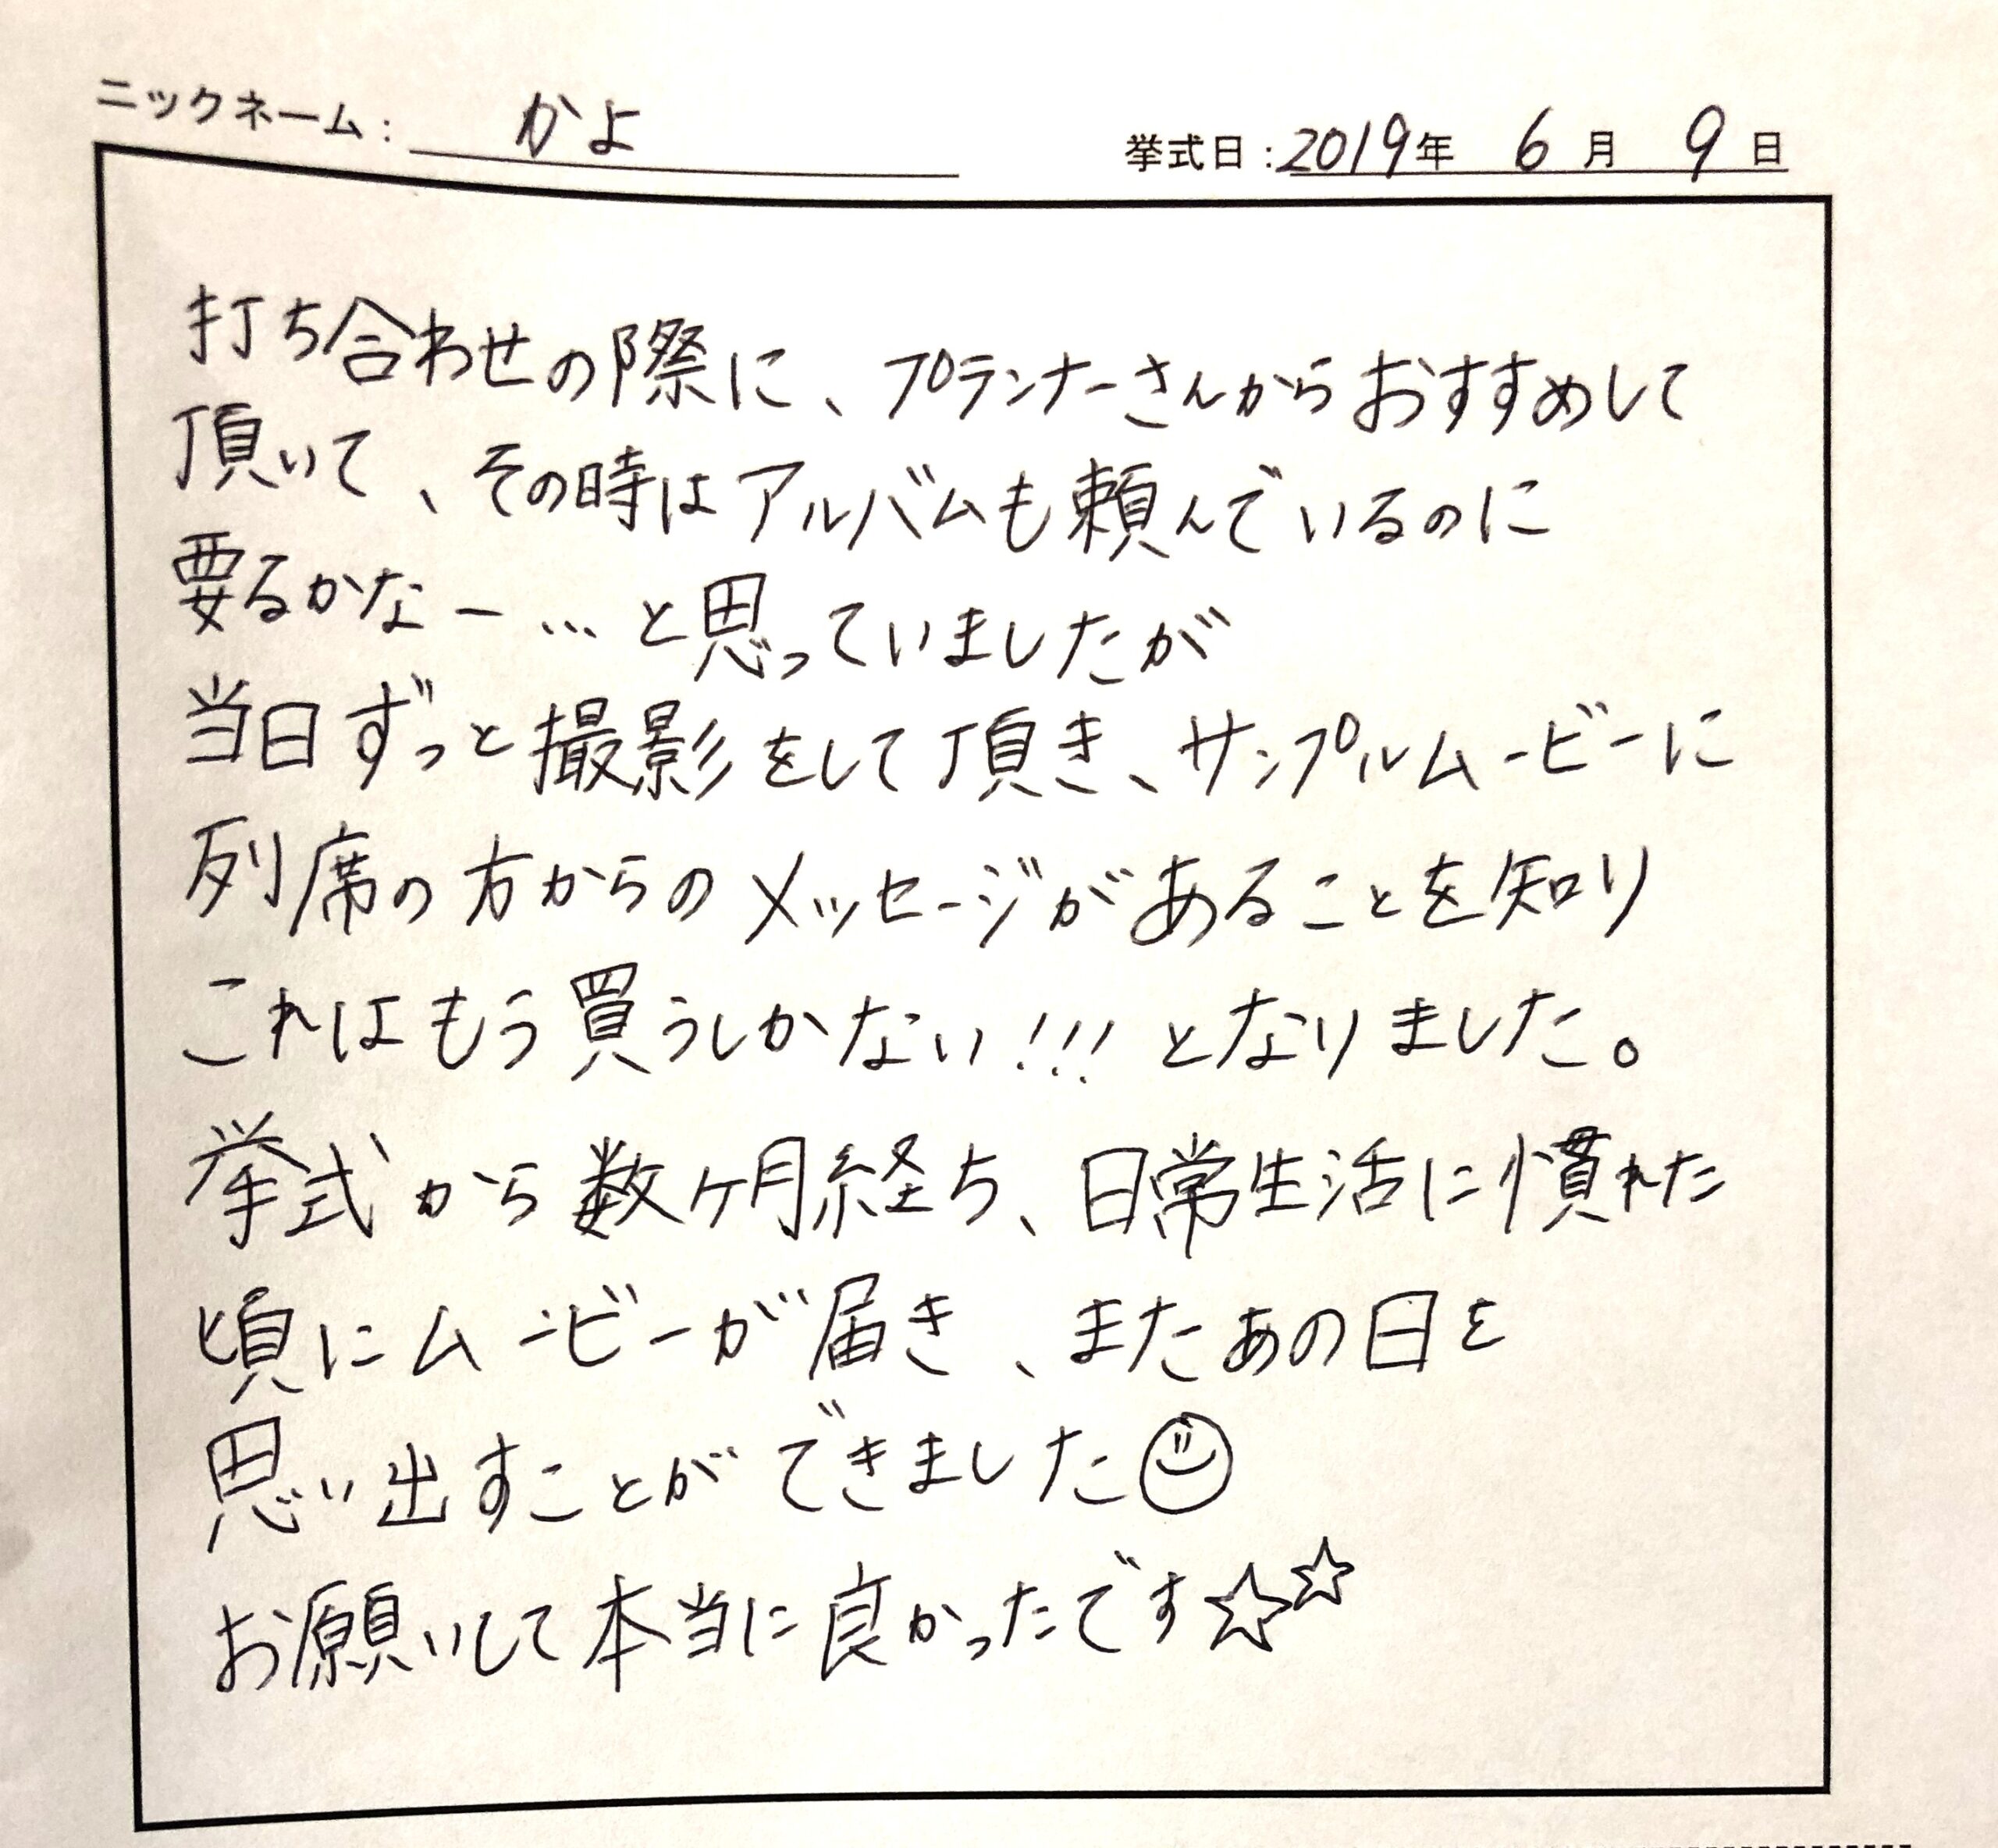 ニックネーム： かよ 挙式日：2019年 6月 9日
打ち合わせの際に、プランナーさんからおすすめして
頂いて、その時はアルバムも頼んでいるのに
要るかなー…と思っていましたが
当日ずっと撮影をして頂き、サンプルムービーに
列席の方からのメッセージがあることを知り
これはもう買うしかない!!!となりました。
挙式から数ヶ月経ち、日常生活に慣れた
頃にムービーが届き、またあの日を
思い出すことができました☺
お願いして本当に良かったです☆☆